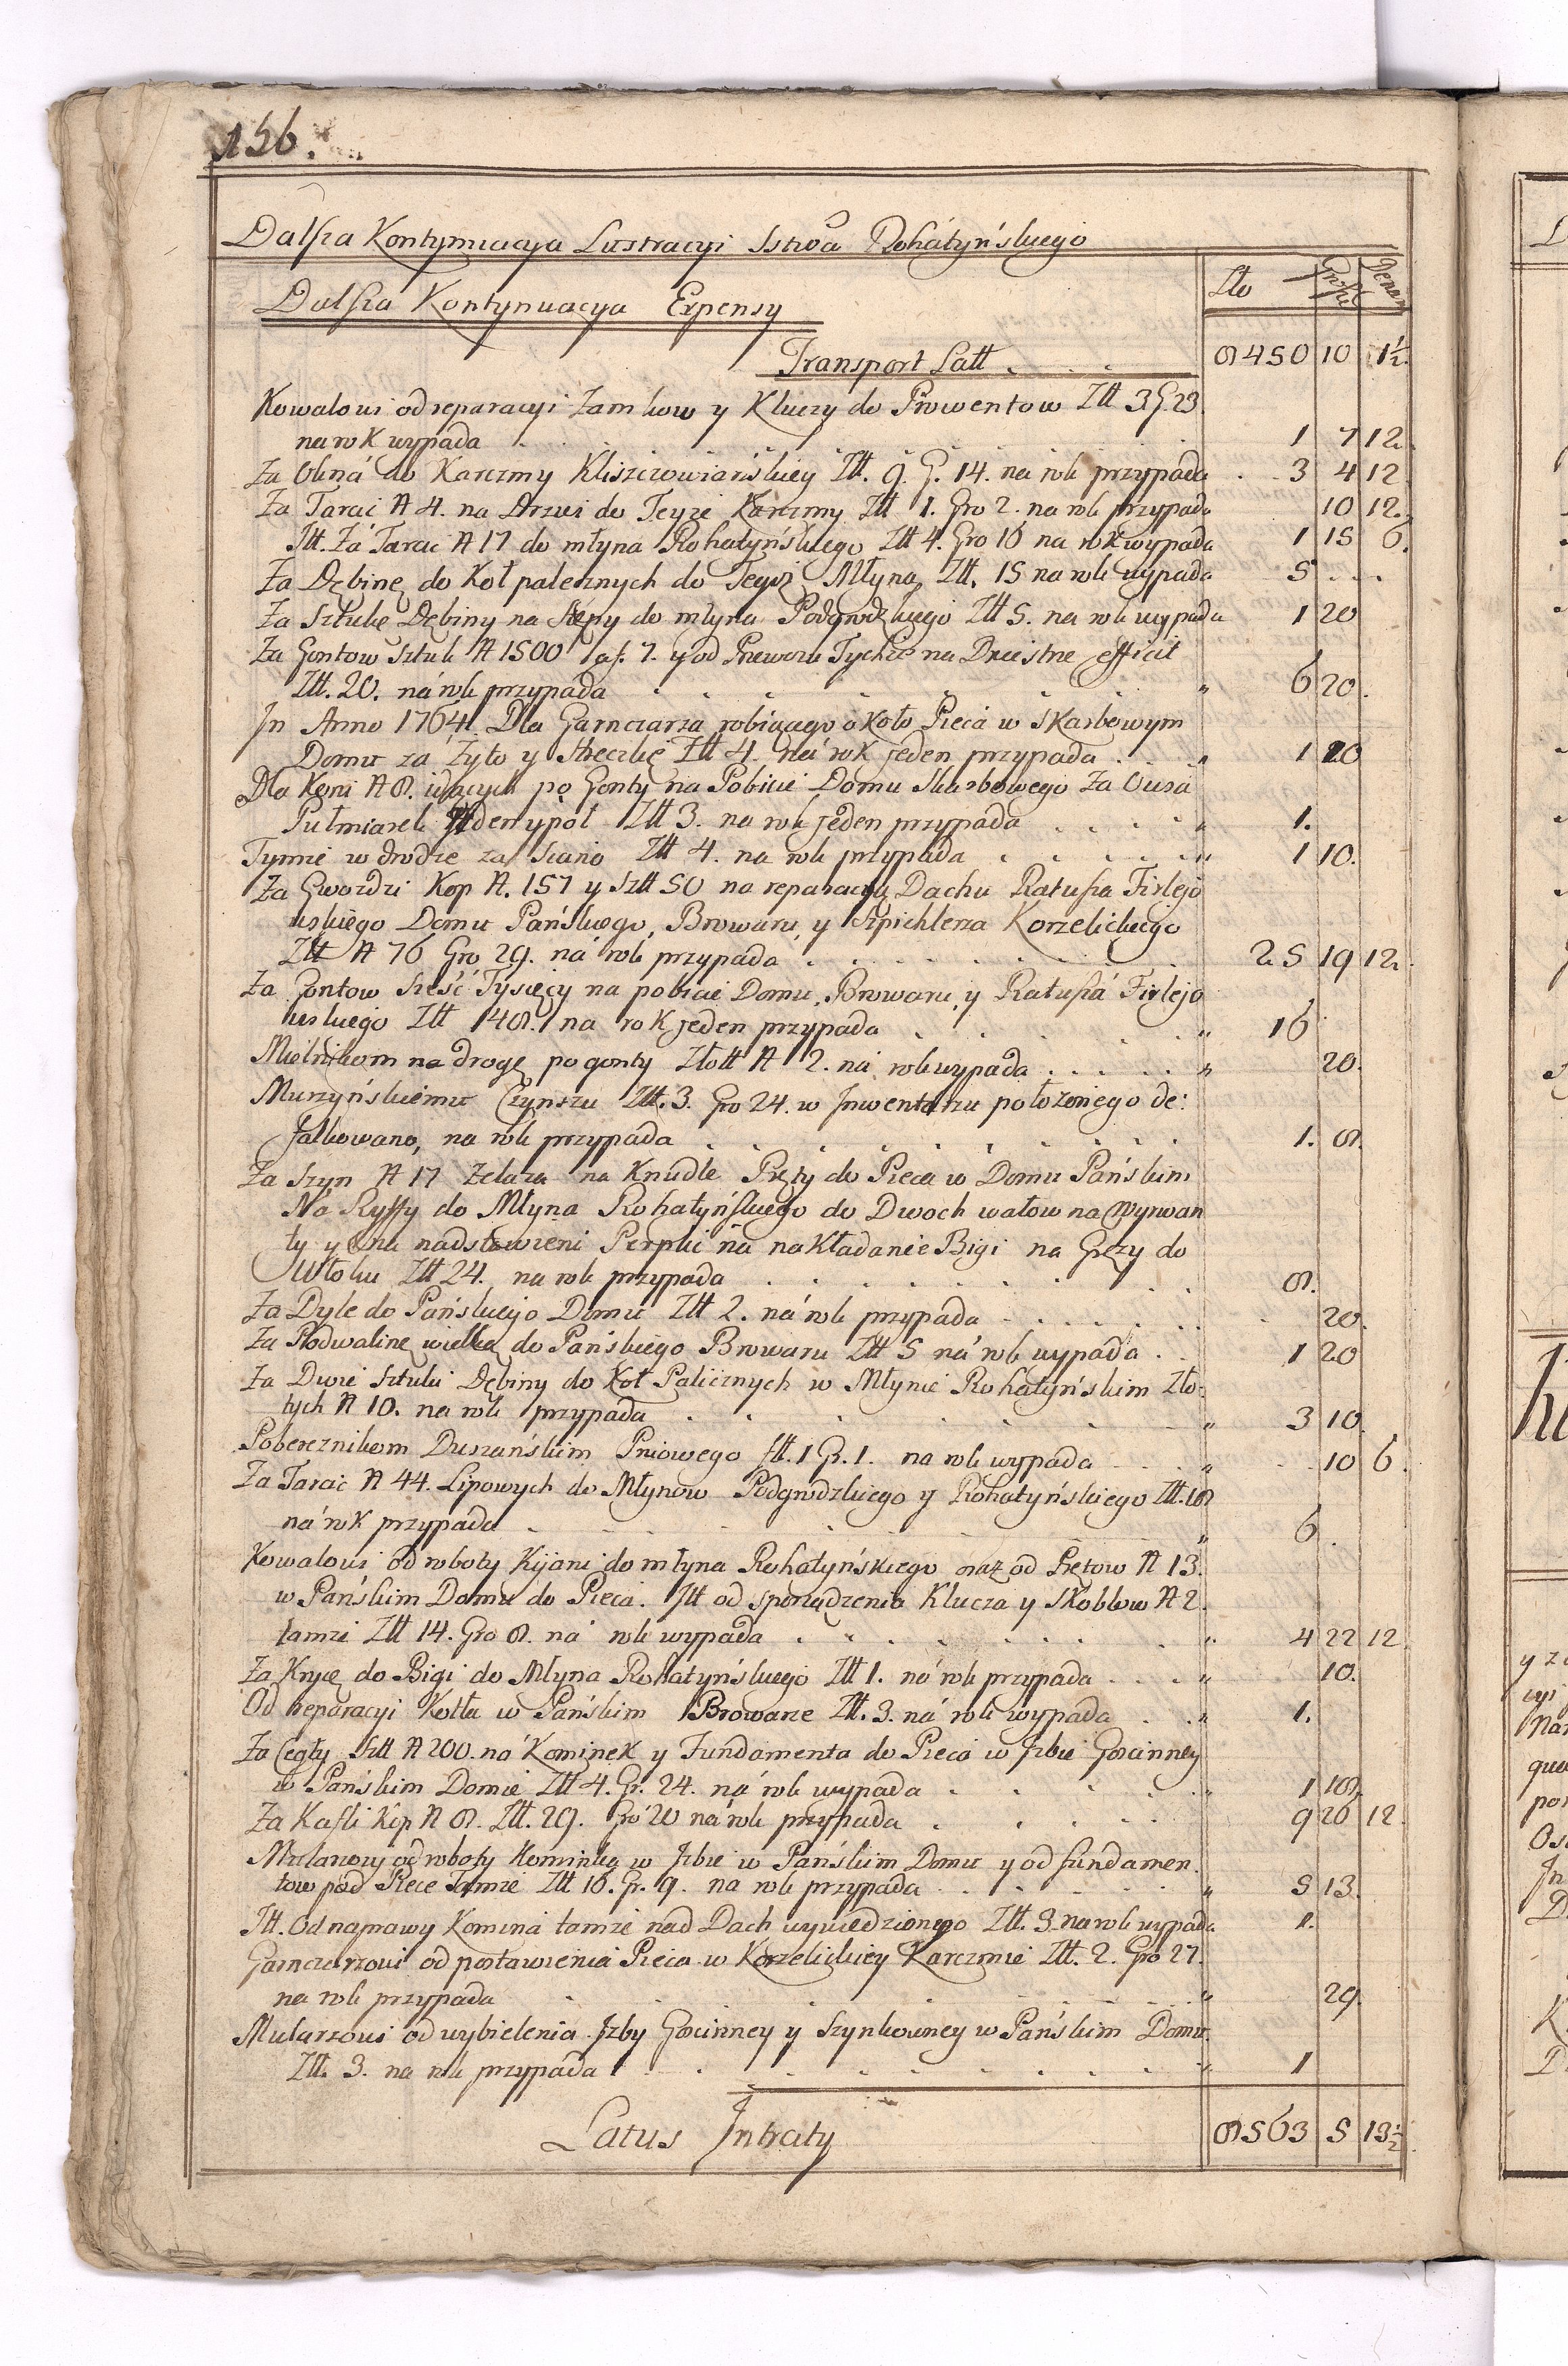 156.
Dalsza Kontynuacya Lustracyi Sstwa Rohatyńskiego
Dalsza Kontynuacya Expensy
Złło Grosze Denar
Transport Latt . . . 8450 10 1½
Kowalowi od reparacyi Zamkow y Kluczy do Prowentow Złt 3 G. 23.
na rok wypada . . . 1 7 12
Za Okna do Karczmy Kliszczowiańskiey Złt. 9. G. 14. na rok przypada . . 3 4 12
Za Tarcic N 4. na Drzwi do Teyże Karczmy Złt 1. Gro 2. na rok przypada 10 12.
Itt. Za Tarcic N 17 do młyna Rohatyńskiego Złt 4. Gro 16 na rok wypada 1 15 6.
Za Dębinę do Koł palecznych do Tegoż Młyna Złt. 15 na rok wypada 5 . .
Za Sztukę Dębiny na Stępy do młyna Podgrodzkiego Złt 5. na rok wypada 1 20
Za Gontow Sztuk N 1500 af. 7. y od Przewozu Tychże na Dniestrze efficit
Złt. 20. na rok przypada . . . " 6 20.
In Anno 1764. Dla Garnczarza robiącego około Pieca w Skarbowym
Domu za Żyto y Hreczkę Złt 4. na rok jeden przypada . . " 1 10
Dla Koni N 8. idących po Gonty na Pobicie Domu Skarbowego Za Owsa
Pułmiarek Jeden ypół Złt 3. na rok jeden przypada . . . " 1.
Tymże w drodze za Siano Złt 4. na rok przypada . . . " 1 10.
Za Gwoździ Kop N. 157 y Sztt 50 na reparacyą Dachu Ratusza Firlejo
wskiego Domu Pańskiego, Browaru, y Szpichlerza Korzelickiego
Złt N 76 Gro 29. na rok przypada . . . 25 19 12.
Za Gontow Sześć Tysięcy na pobicie Domu, Browaru, y Ratusza Firlejo
wskiego Złt 48. na rok jeden przypada . . . " 16
Mielnikom na drogę po gonty Złott N 2. na rok wypada . . . " 20.
Muszyńskiemu Czynszu Złt. 3. Gro 24. w Inwentarzu położonego de:
falkowano, na rok przypada . . . 1. 8.
Za Szyn N 17 Żelaza na Knudle Pręty do Pieca w Domu Pańskim
Na Ryffy do Młyna Rohatyńskiego do Dwoch wałow na
ty y na nadstawieni na nakładanie Bigi na Gręzy do
Wtoku Złt 24. na rok przypada . . . 8.
Za Dyle do Pańskiego Domu Złt 2. na rok przypada . . . 20.
Za Podwalinę wielką do Pańskiego Browaru Złt 5 na rok wypada . 1 20
Za Dwie Sztuki Dębiny do Koł Palicznych w Młynie Rohatyńskim Zło:
tych N 10. na rok przypada . . . " 3 10.
Pobereznikom Duszańskim Pniowego Złt. 1 Gr. 1. na rok wypada . . " 10 6.
Za Tarcic N 44. Lipowych do Młynow Podgrodzkiego y Rohatyńskiego Złt. 18
na rok przypada . . . " 6.
Kowalowi od roboty Kijani do młyna Rohatyńskiego oraz od Prętow N 13.
w Pańskim Domu do Pieca. Itt od sporządzenia Klucza y Skoblow N 2.
tamże Złt 14. Gro 8. na rok wypada . . . " 4 22 12.
Za Kryię do Bigi do Młyna Rohatyńskiego Złt 1. na rok przypada . . " 10.
Od reparacyi Kotła w Pańskim Browarze Złt. 3. na rok wypada . . " 1.
Za Cegły Sztt N 200. na Kominek y Fundamenta do Pieca w Izbie Goscinney
w Pańskim Domie Złt 4. Gr. 24. na rok wypada . . . " 1 18.
Za Kafli Kop N 8. Złt. 29. Gro 20 na rok przypada . . . 9 26 12.
Mularzowi od roboty Kominka w Izbie w Pańskim Domu y od fundamen.
tow pod Piece Tamże Złt 16. Gr. 9. na rok przypada . . . " 5 13.
Itt. Od naprawy Komina tamże nad Dach wywiedzionego Złt. 3. na rok wypada 1.
Garnczarzowi od postawienia Pieca w Korzelickiey Karczmie Złt. 2. Gro 27.
na rok przypada . . . " 29.
Mularzowi od wybielenia Izby Goscinney y Szynkowney w Pańskim Domu.
Złt. 3. na rok przypada . . . " 1
Latus Intraty 8563 5 13½